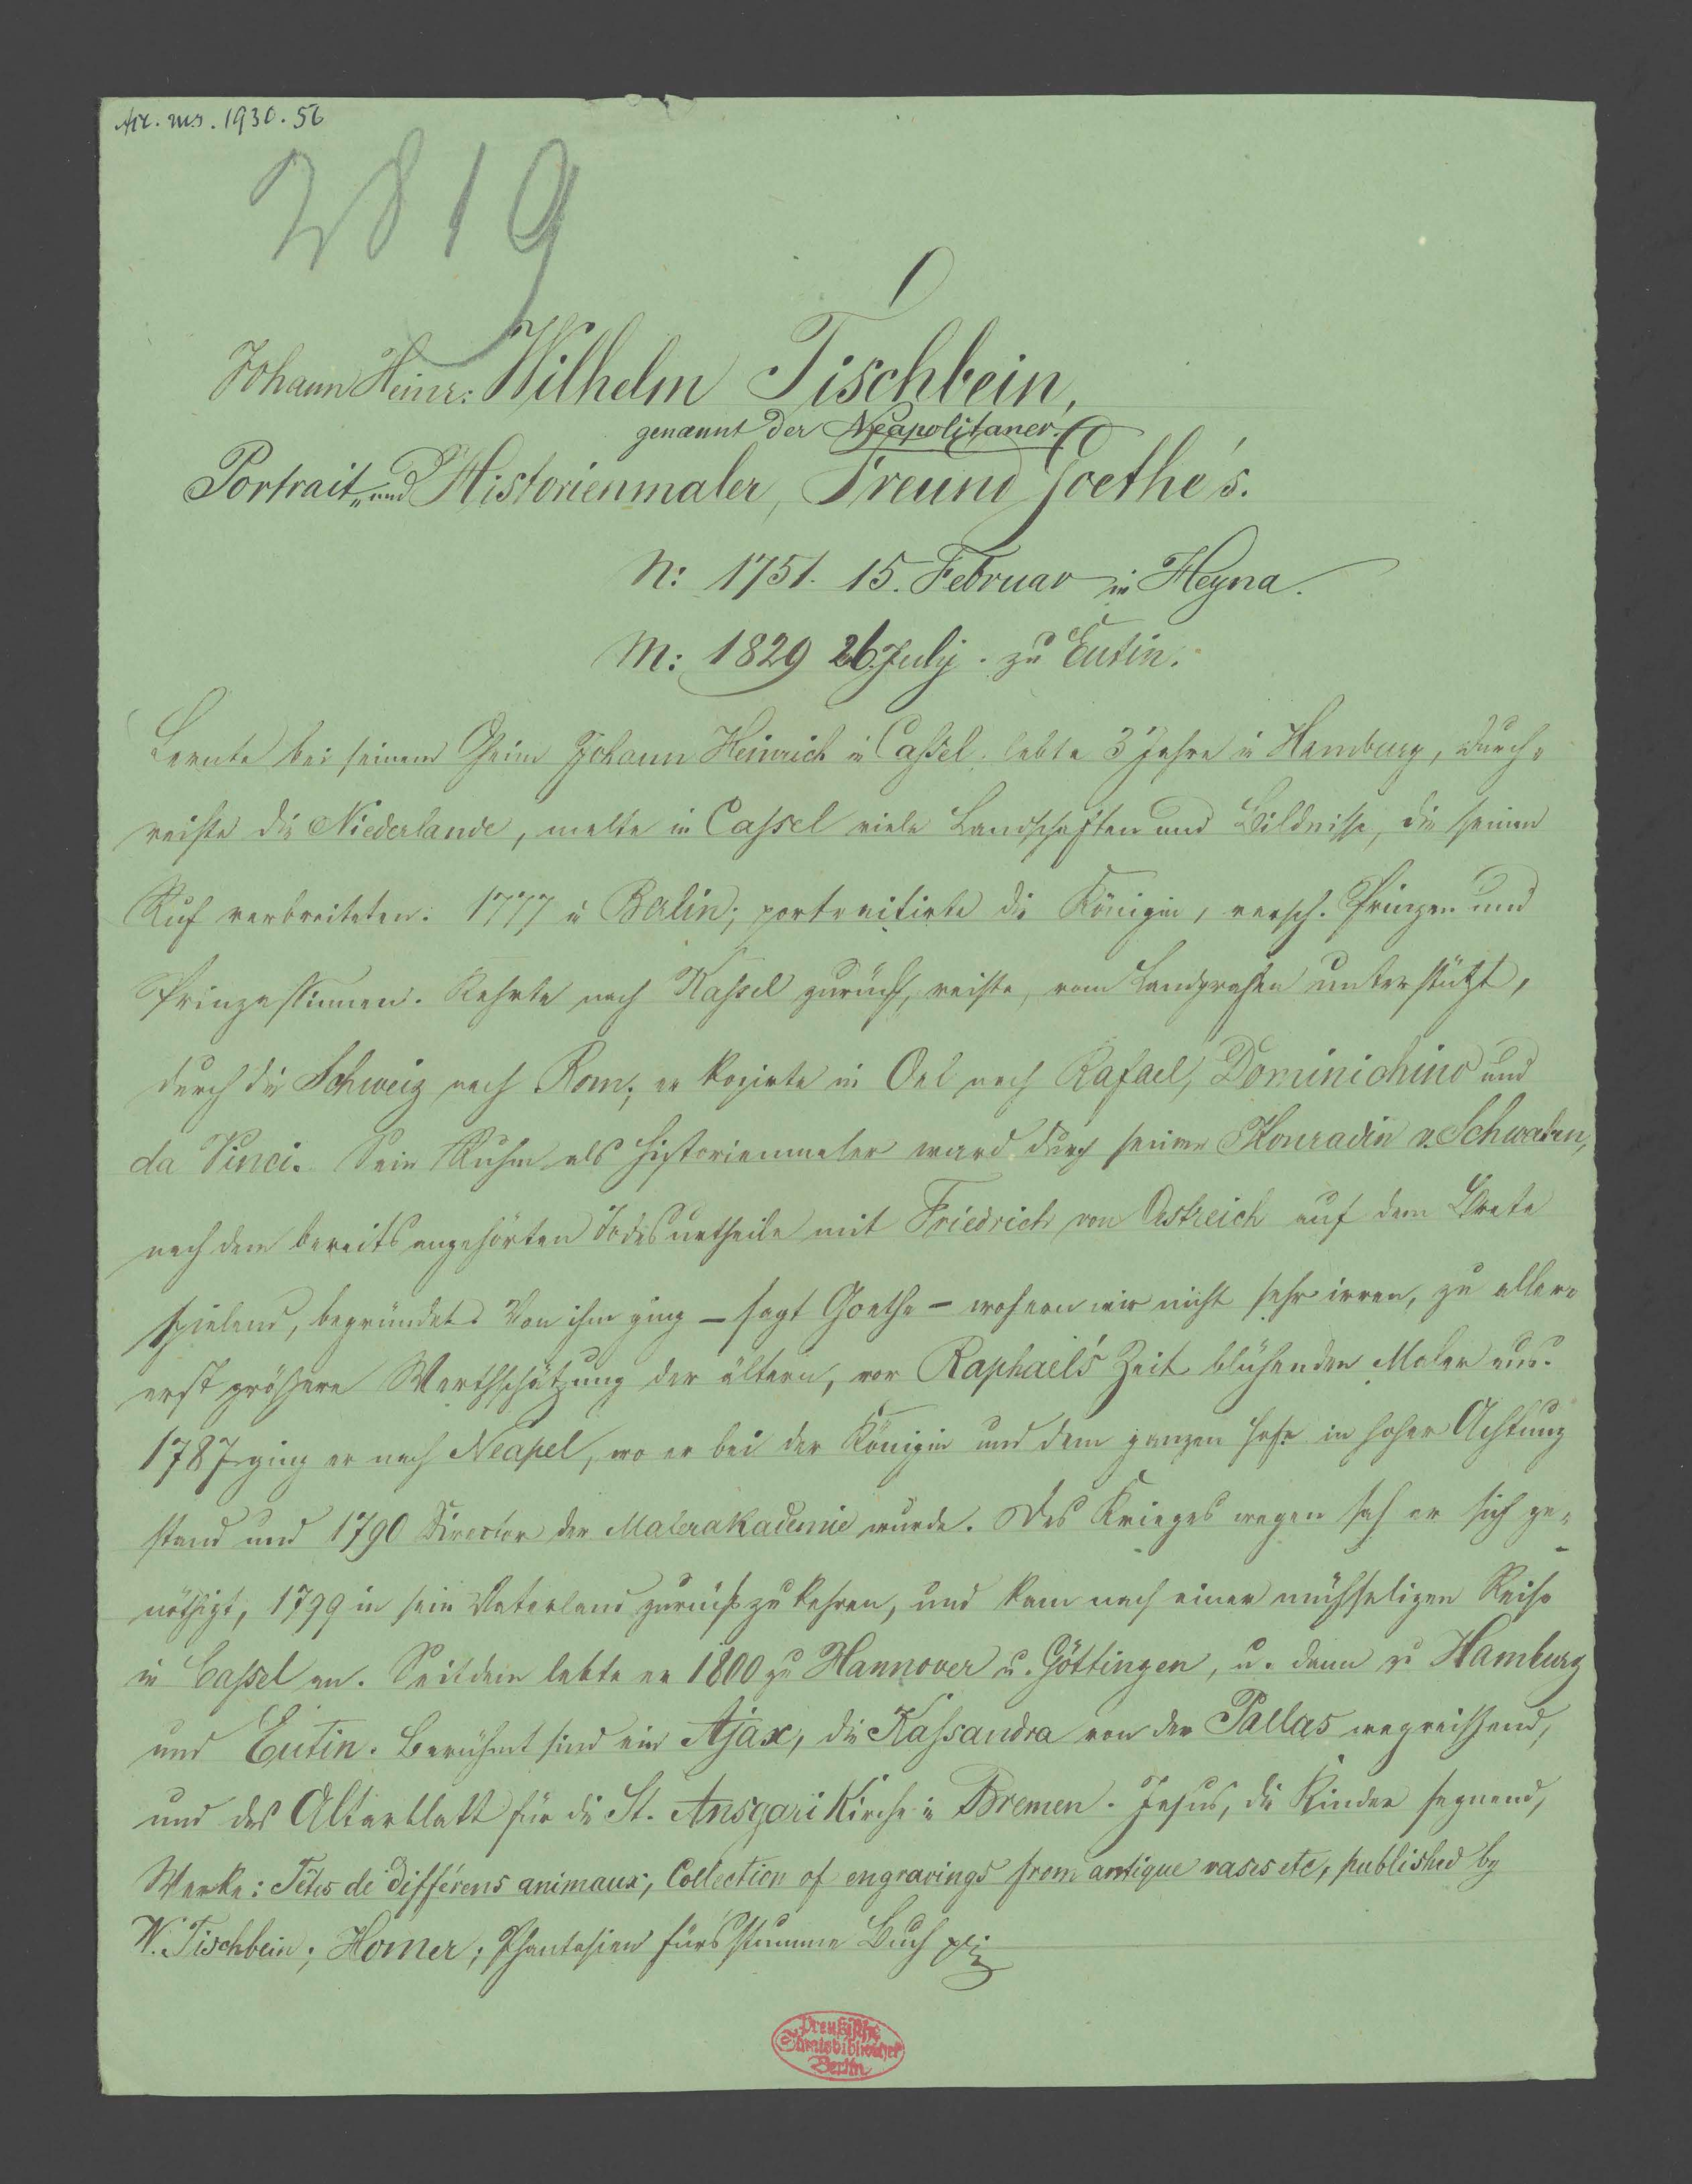 Acc. ms. 1930. 56
2819
Johann Heinr: Wilhelm Tischbein,
genannt der Neapolitaner.
Portrait- und Historienmaler, Freund Goethe's.
N: 1751. 15. Februar in Heyna.
M: 1829 26. July. zu Eutin.
Lernte bei seinem Oheim Johann Heinrich in Caßel. lebte 3 Jahre in Hamburg, durch-
reiste die Niederlande, malte in Caßel viele Landschaften und Bildnisse, die seinen
Ruf verbreiteten. 1777 in Berlin; portraitirte die Königin, versch. Prinzen und
Prinzessinnen. Kehrte nach Kaßel zurück, reiste, vom Landgrafen unterstützt,
durch die Schweiz nach Rom; er kopirte in Oel nach Rafael, Dominichino und
da Vinci. Sein Ruhm als Historienmaler ward durch seinen Konradin v. Schwaben,
nach dem bereits angehörten Todesurtheile mit Friedrich von Oestreich auf dem Brete
spielend, begründet. Von ihm ging – sagt Goethe – wofern wir nicht sehr irren, zu aller-
erst größere Werthschätzung der ältern, vor Raphael's Zeit blühenden Maler aus.
1787 ging er nach Neapel, wo er bei der Königin und dem ganzen Hofe in hoher Achtung
stand und 1790 Director der Malerakademie wurde. Des Krieges wegen sah er sich ge-
nöthigt, 1799 in sein Vaterland zurückzukehren, und kam nach einer mühseligen Reise
in Caßel an. Seitdem lebte er 1800 zu Hannover u. Göttingen, u. dann zu Hamburg
und Eutin. Berühmt sind ein Ajax, die Kaßandra von der Pallas wegreißend,
und das Altarblatt für die St. Ansgari Kirche in Bremen. Jesus, die Kinder segnend,
Werke: Têtes de différens animaux; Collection of engravings from antique vases etc, published by
W. Tischbein; Homer; Phantasien fürs stumme Buch
Preußische
Staatsbibliothek
Berlin